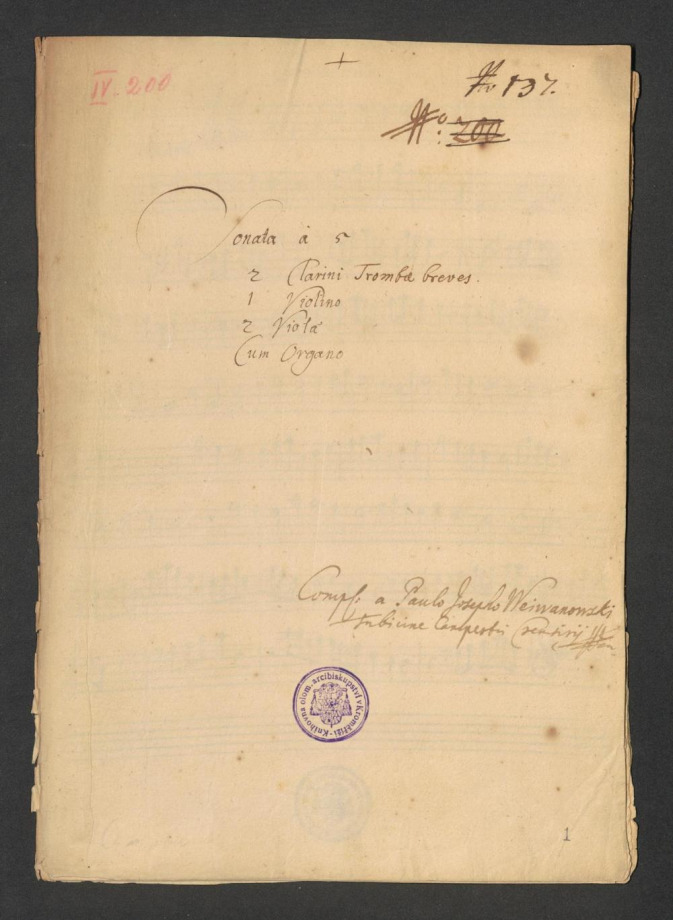 IV. 200
No 137.
No: 200
Sonata à 5
2 Clarini Trombæ breves.
1 Violino
2 Violæ
Cum Organo
Comps: a Paulo Josepho Weiwanowski
Tubicine Campestri
Knihovna olom. arcibiskupství v Kroměříži
1